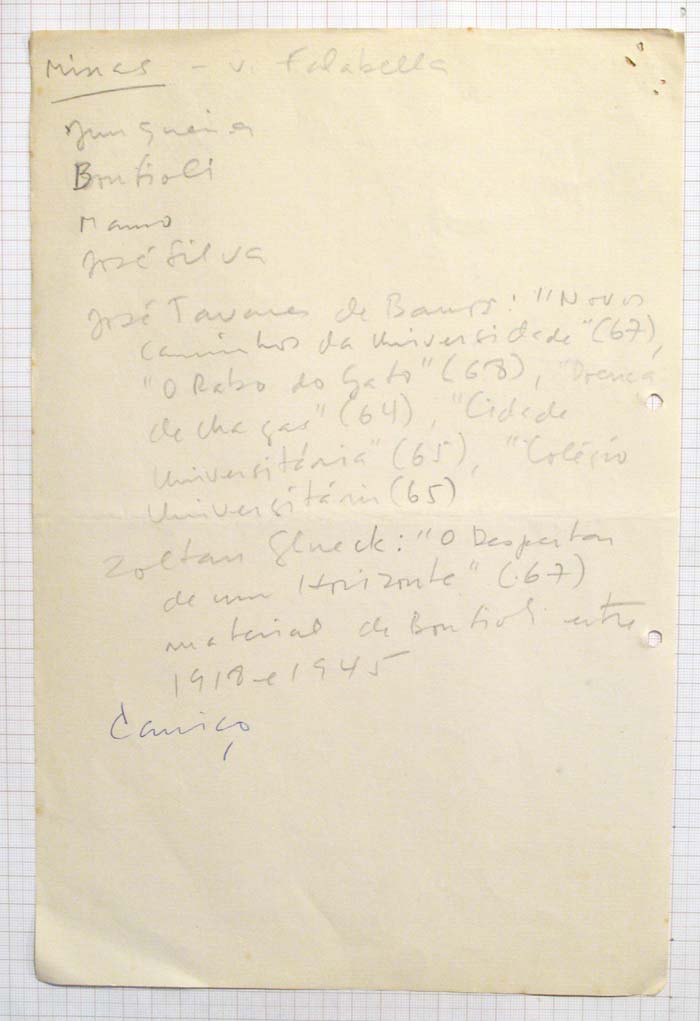 Minas - v. Falabella
Junqueira
Bonfioli
Mauro
José Silva
José Tavares de Barros: "Novos
caminhos da Universidade" (67),
"O Rabo do Gato" (68), "Doença
de chagas" (64), "Cidade
Universitária" (65), "Colégio
Universitário (65)
Zoltan Glueck: "O Despertar
de um Horizonte" (67)
material de Bonfioli entre
1918 e 1945